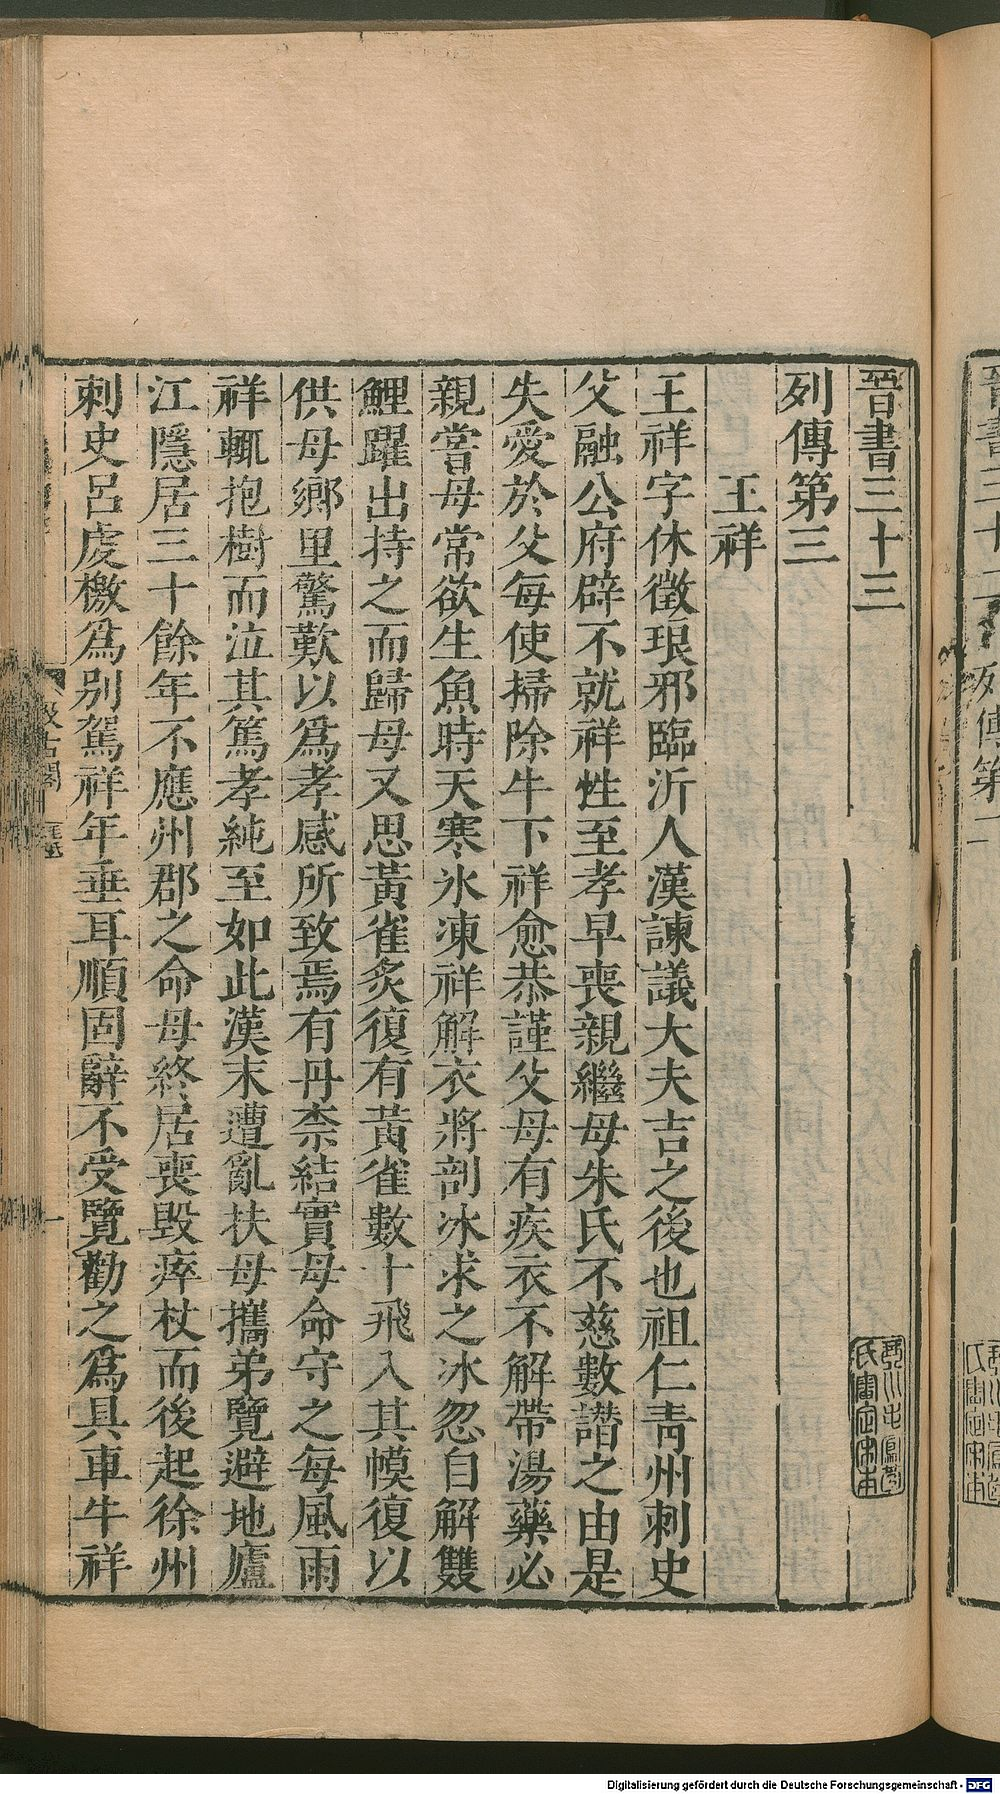 晉書三十三
列傳第三
王祥
王祥字休徵琅邪臨沂人漢諫議大夫吉之後也祖仁靑州刺史
父融公府辟不就祥性至孝早喪親繼母朱氏不慈數譖之由是
失愛於父每使掃除牛下祥愈恭謹父母有疾衣不解帶湯藥必
親嘗母常欲生魚時天寒冰凍祥解衣將剖冰求之冰忽自解雙
鯉躍出持之而歸母又思黃雀炙復有黃雀數十飛入其幙復以
供母鄉里驚歎以爲孝感所致焉有丹柰結實母命守之每風雨
祥輒抱樹而泣其篤孝純至如此漢末遭亂扶母攜弟覽避地廬
江隱居三十餘年不應州郡之命母終居喪毀瘁杖而後起徐州
刺史呂虔檄爲別駕祥年垂耳順固辭不受覽勸之爲具車牛祥
汲古閣
列傳第二
Digitalisierung gefördert durch die Deutsche Forschungsgemeinschaft - DFG